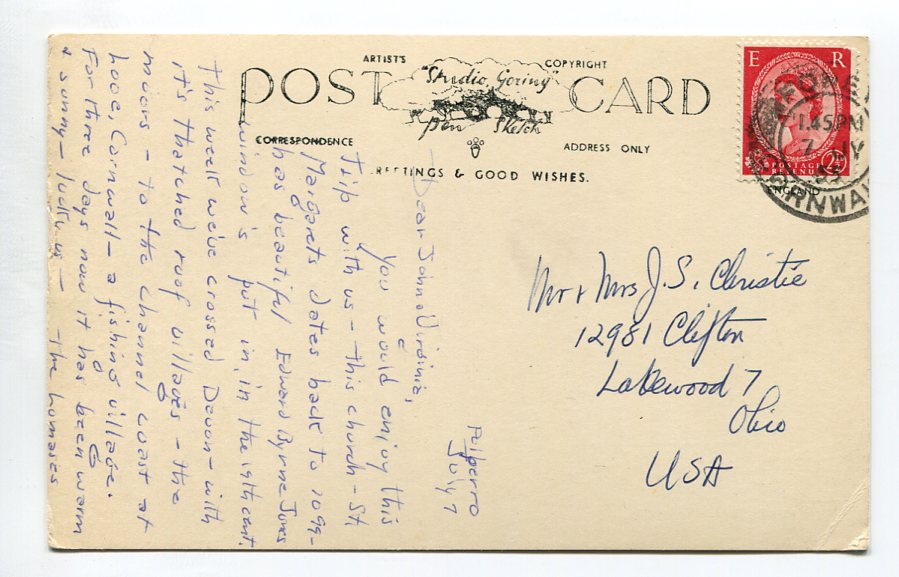 ARTIST'S COPYRIGHT
POST CARD
"Studio Goring"
Pen Sketch
CORRESPONDENCE ADDRESS ONLY
REETINGS & GOOD WISHES.
E R
POSTAGE
REVENUE
ENGLAND
1.45 PM
7 JY
CORNWALL
Polperro
July 7
Dear John & Virginia,
You would enjoy this
trip with us - this church - St.
Margarets dates back to 1099 -
has beautiful Edward Byrne Jones
windows put in, in the 19th cent.
This week we've crossed Devon - with
it's thatched roof villages - the
moors - to the channel coast at
Looe, Cornwall - a fishing village.
For three days now it has been warm
& sunny - lucky us - The Lomases
Mr & Mrs J. S. Christie
12981 Clifton
Lakewood 7
Ohio
USA